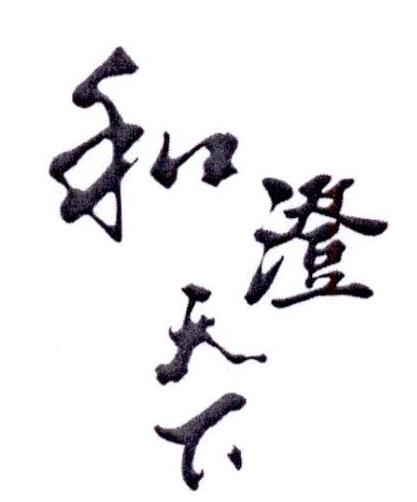 和澄
天下